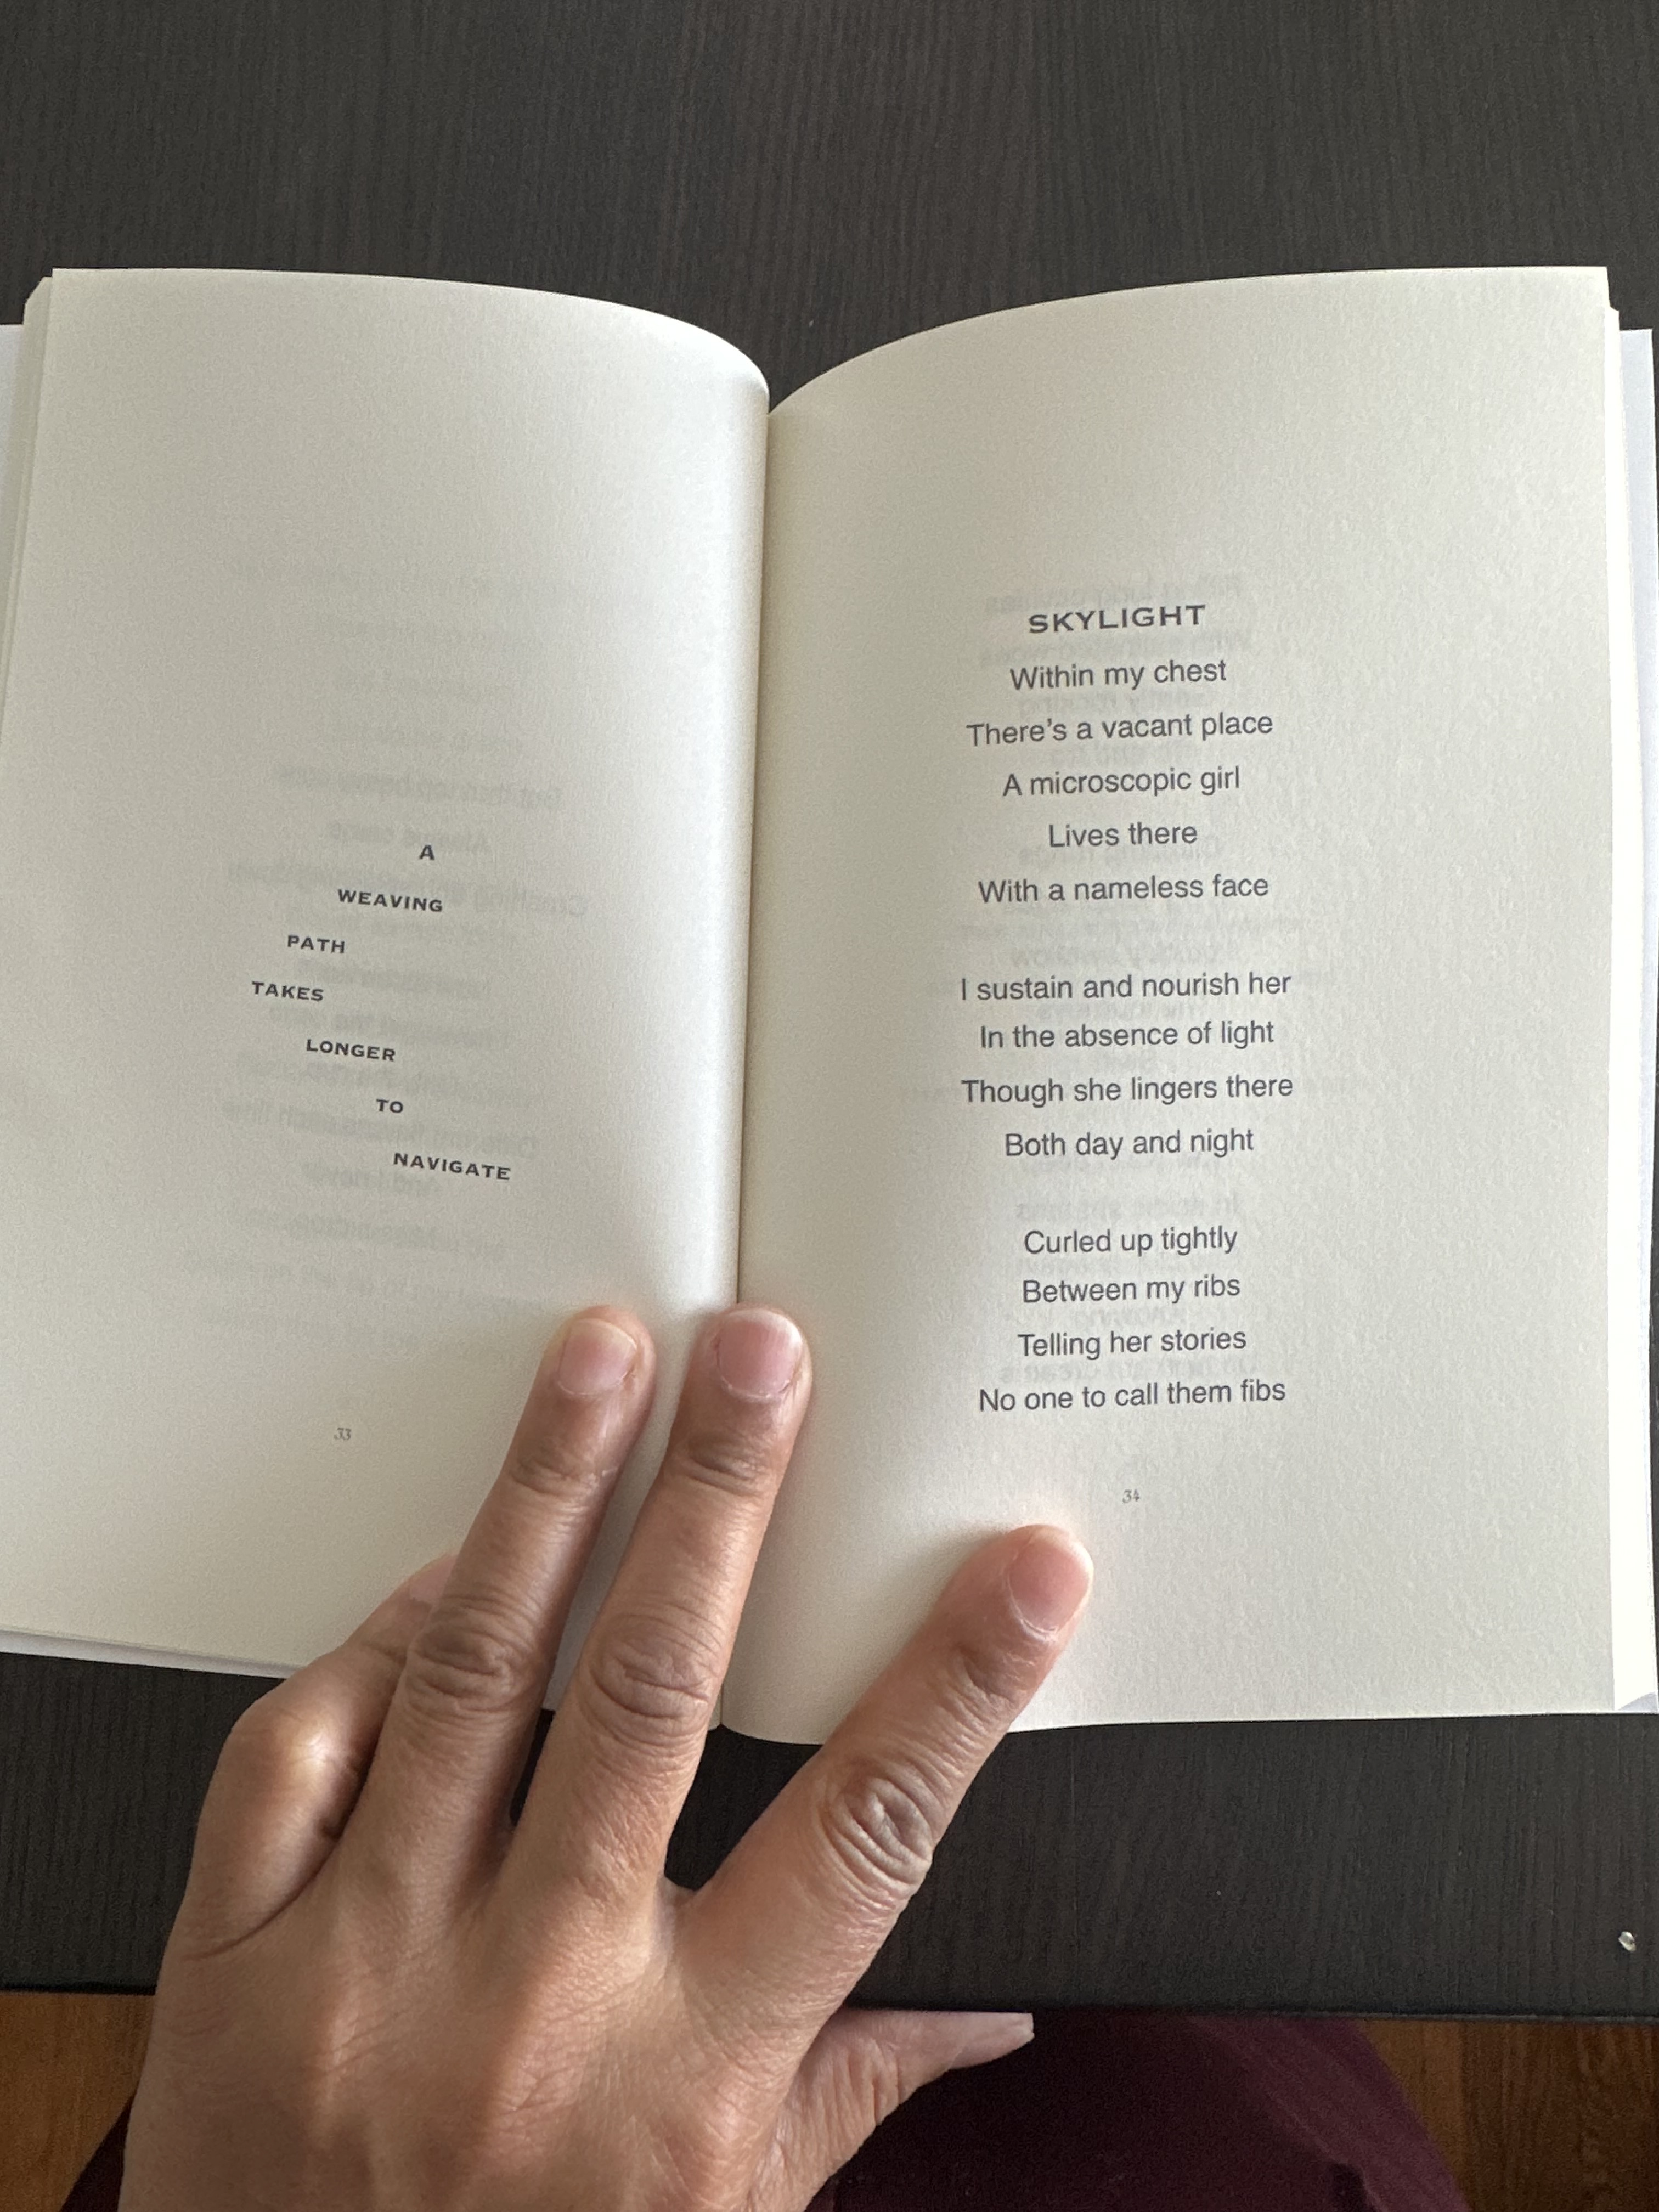 A
WEAVING
PATH
TAKES
LONGER
TO
NAVIGATE
33
SKYLIGHT
Within my chest
There's a vacant place
A microscopic girl
Lives there
With a nameless face
I sustain and nourish her
In the absence of light
Though she lingers there
Both day and night
Curled up tightly
Between my ribs
Telling her stories
No one to call them fibs
34